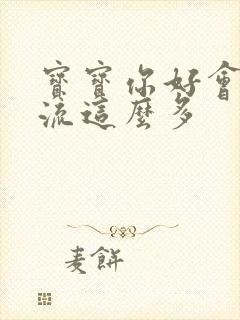 寶寶你好會
流這麼多
麦餅